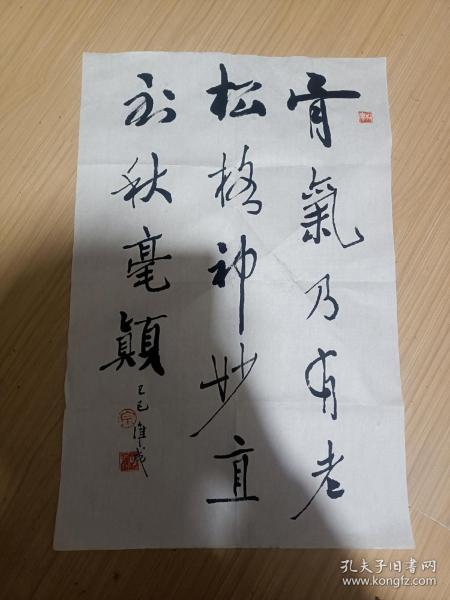 骨氣乃有老
松格神妙直
到秋毫顛
乙巳 維成
孔夫子旧书网
www.kongfz.com